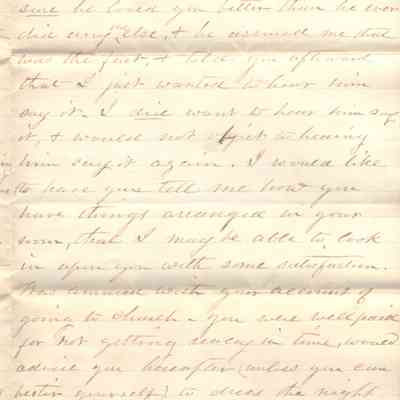 sure he loved you better than he ever
did any one else, & he assured me that
was the fact, & told you afterward
that I just wanted to hear him
say it - I did want to hear him say
it, & would not object to hearing
him say it again. I would like
to have you tell me how you
have things arranged in your
room, that I may be able to look
in upon you with some satisfaction.
Was amused with your account of
going to Church - you were well paid
for not getting ready in time, would
advise you hereafter (unless you can
bestir yourself) to dress the night